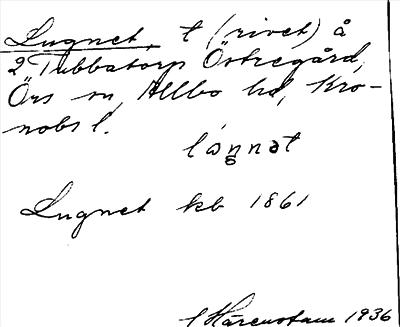 Lugnet, t (rivet) å
2 Tubbatorp Östregård,
Örs sn, Allbo hd, Kro-
nobs l.
Lugnet kb 1861
Härenstam 1936